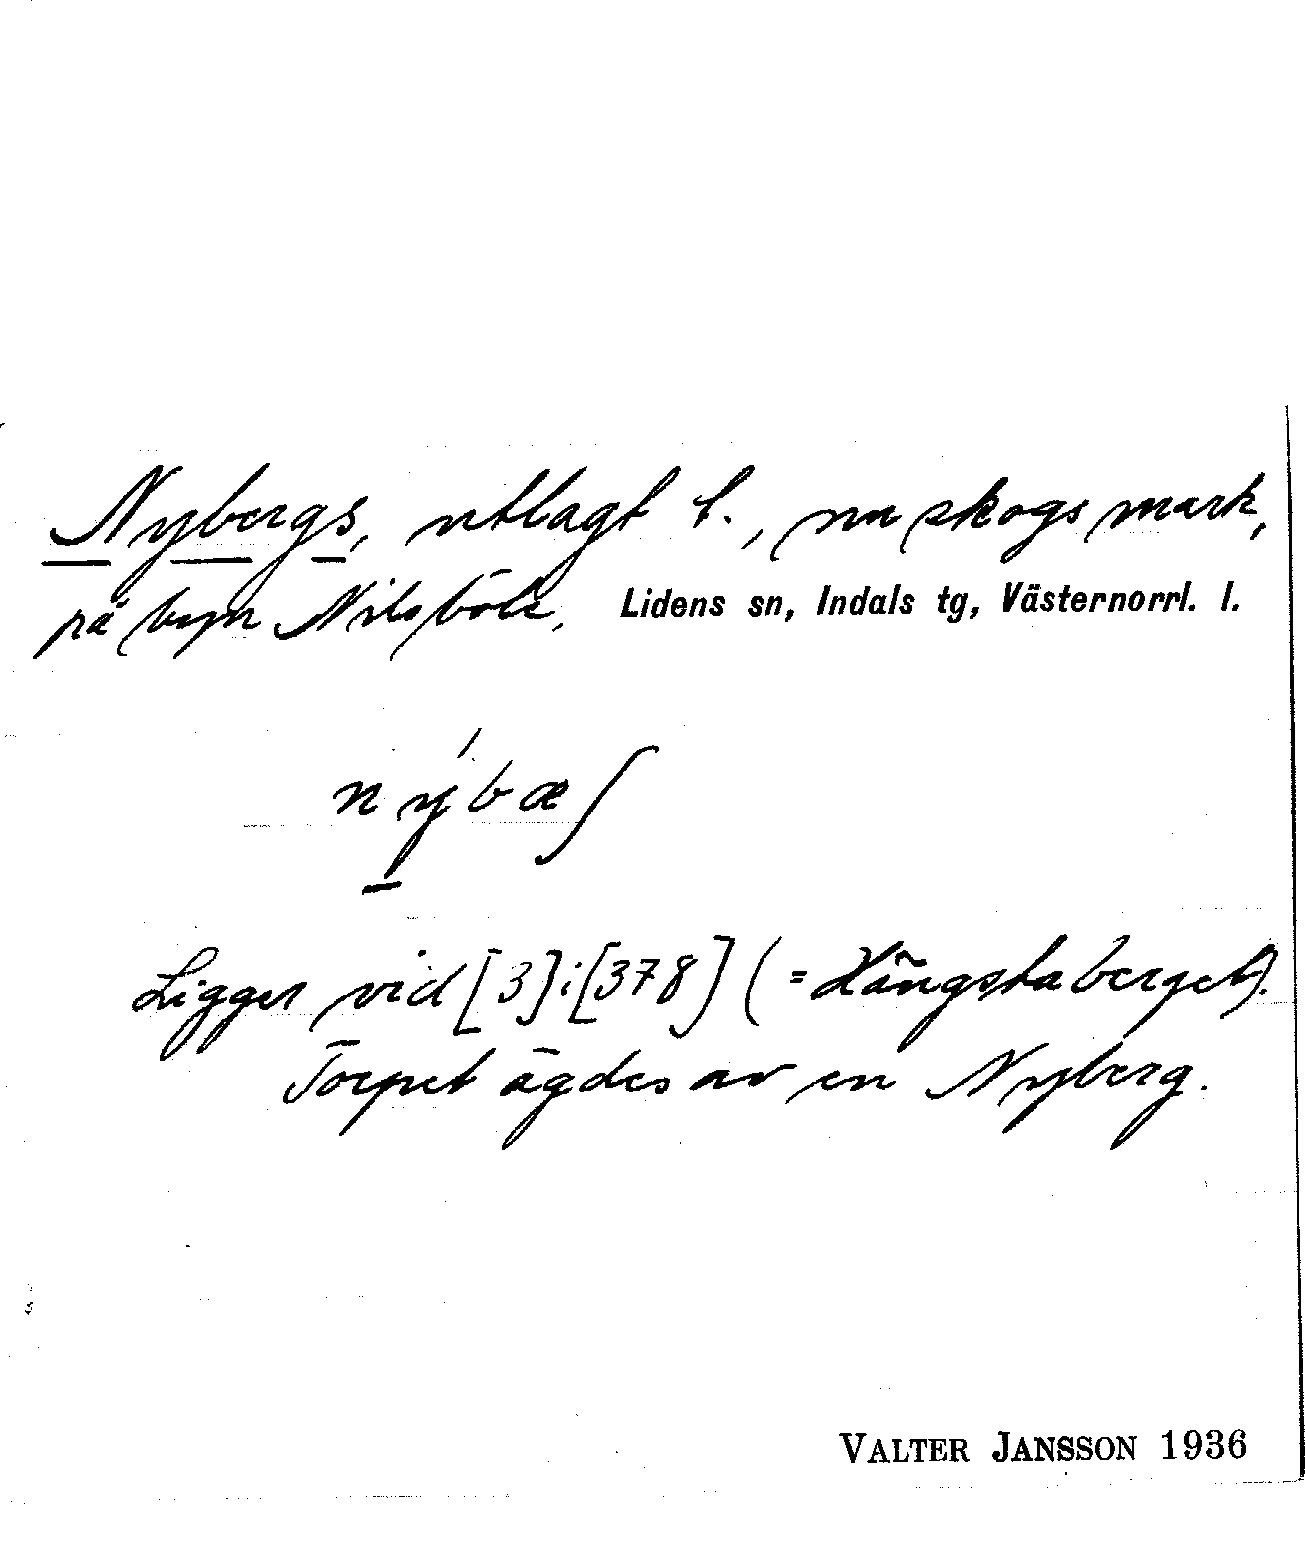 Nybergs, utlagt t., nu skogsmark,
på byn Nilsböle, Lidens sn, Indals tg, Västernorrl. l.
nýbæʃ
Ligger vid [3] i [378] (= Kångstaberget).
Torpet ägdes av en Nyberg.
VALTER JANSSON 1936